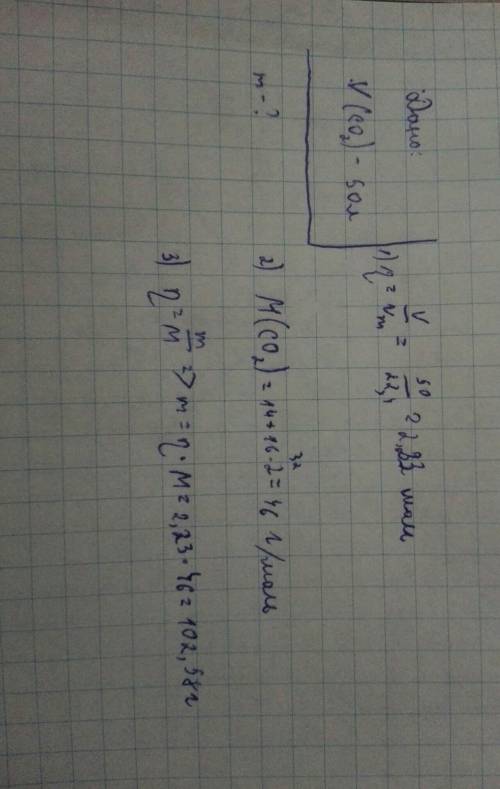 Дано:
V(CO₂) - 50л
m - ?
1) η = V/Vm = 50/22,4 = 2,23 моль
2) M(CO₂) = 14 + 16·2 = 46 г/моль
32
3) η = m/M => m = η · M = 2,23 · 46 = 102,58г